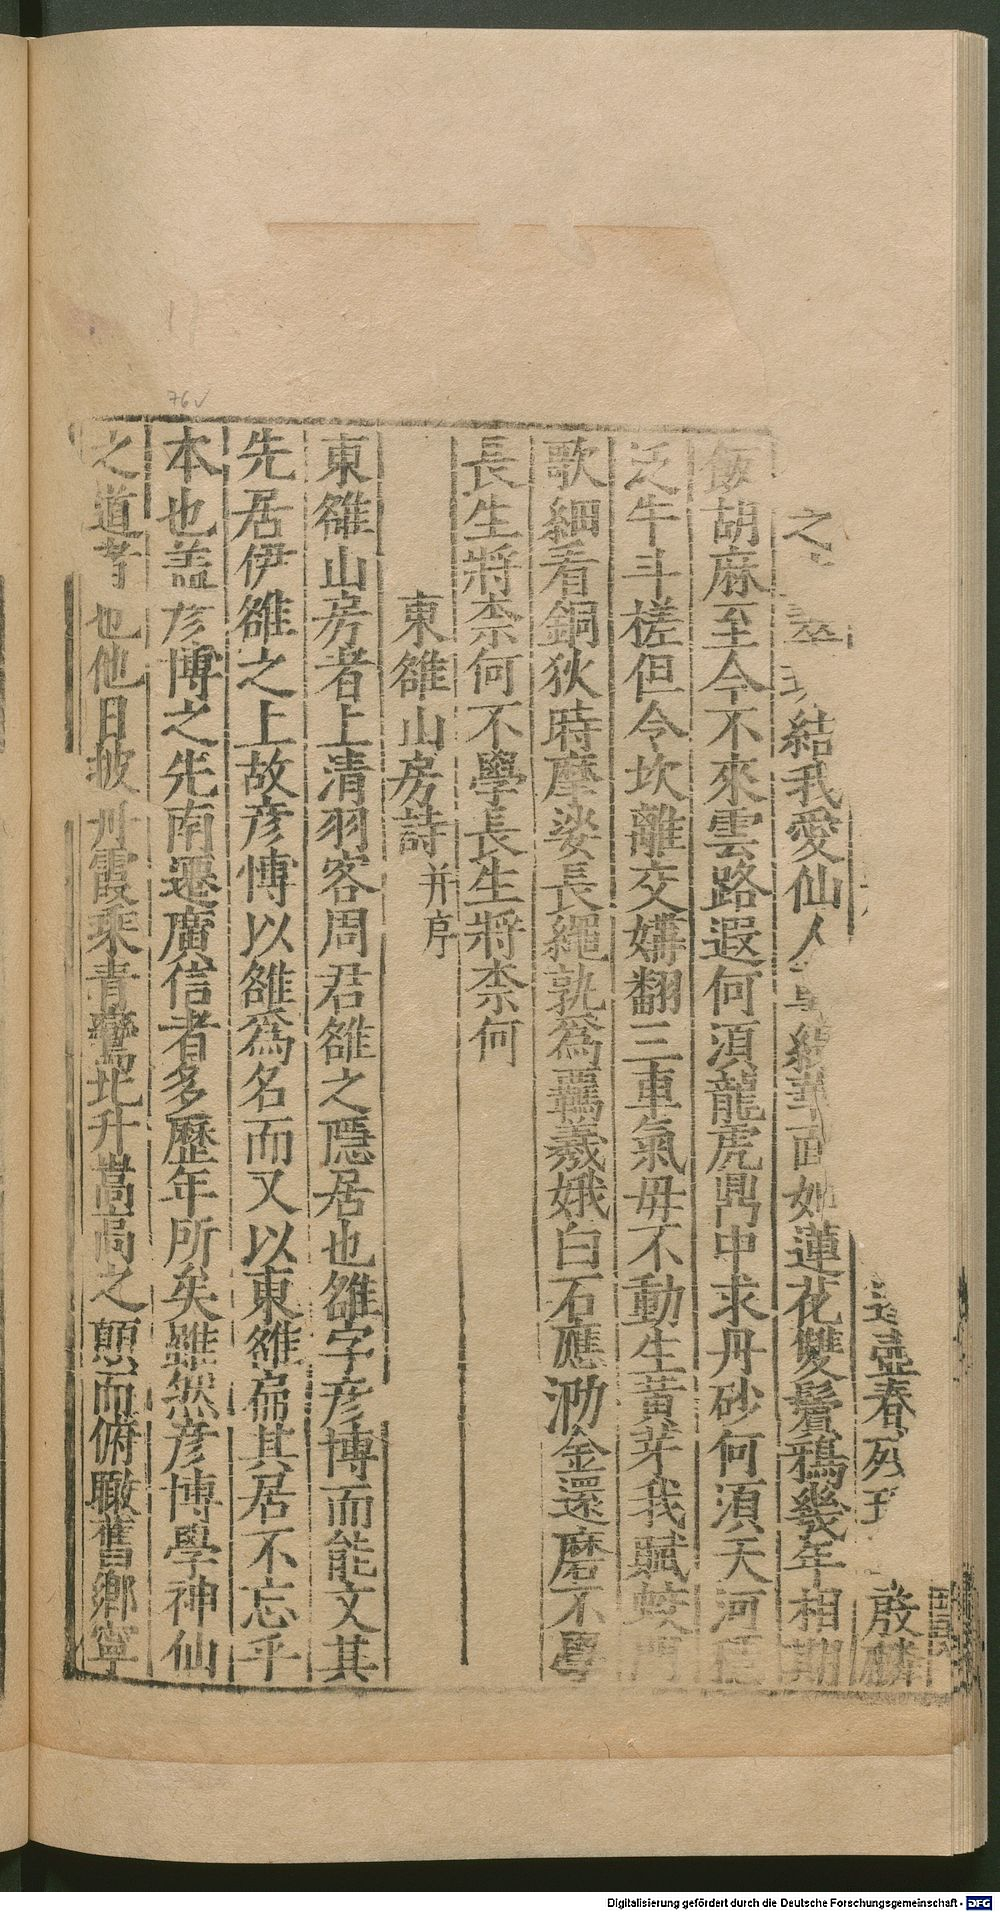 壺春 啟麟
之 結我愛仙人 蓮花雙鬢鴉幾年相期
飯胡麻至今不來雲路遐何須龍虎鼎中求丹砂何須天河
泛牛斗槎但令坎離交媾翻三車氣毋不動生黃芽我賦蛟門
歌細看銅狄時摩挲長繩孰爲羈羲娥白石應泐金還磨不學
長生將柰何不學長生將柰何
東雒山房詩并序
東雒山房者上清羽客周君雒之隱居也雒字彥博而能文其
先居伊雒之上故彥博以雒爲名而又以東雒扁其居不忘乎
本也盖彥博之先南遷廣信者多歷年所矣雖然彥博學神仙
之道者也他日披丹霞乘青鸞北升嵩高之顚而俯瞰舊鄉寧
76v
Digitalisierung gefördert durch die Deutsche Forschungsgemeinschaft - DFG